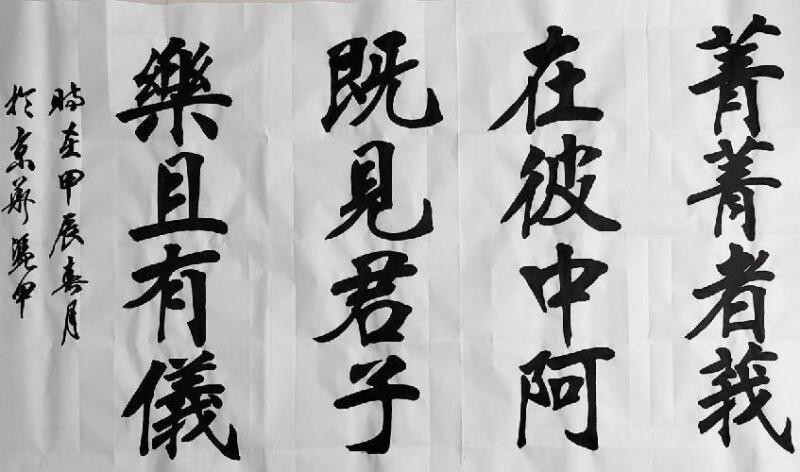 菁菁者莪
在彼中阿
既見君子
樂且有儀
時在甲辰春月
於京華甲